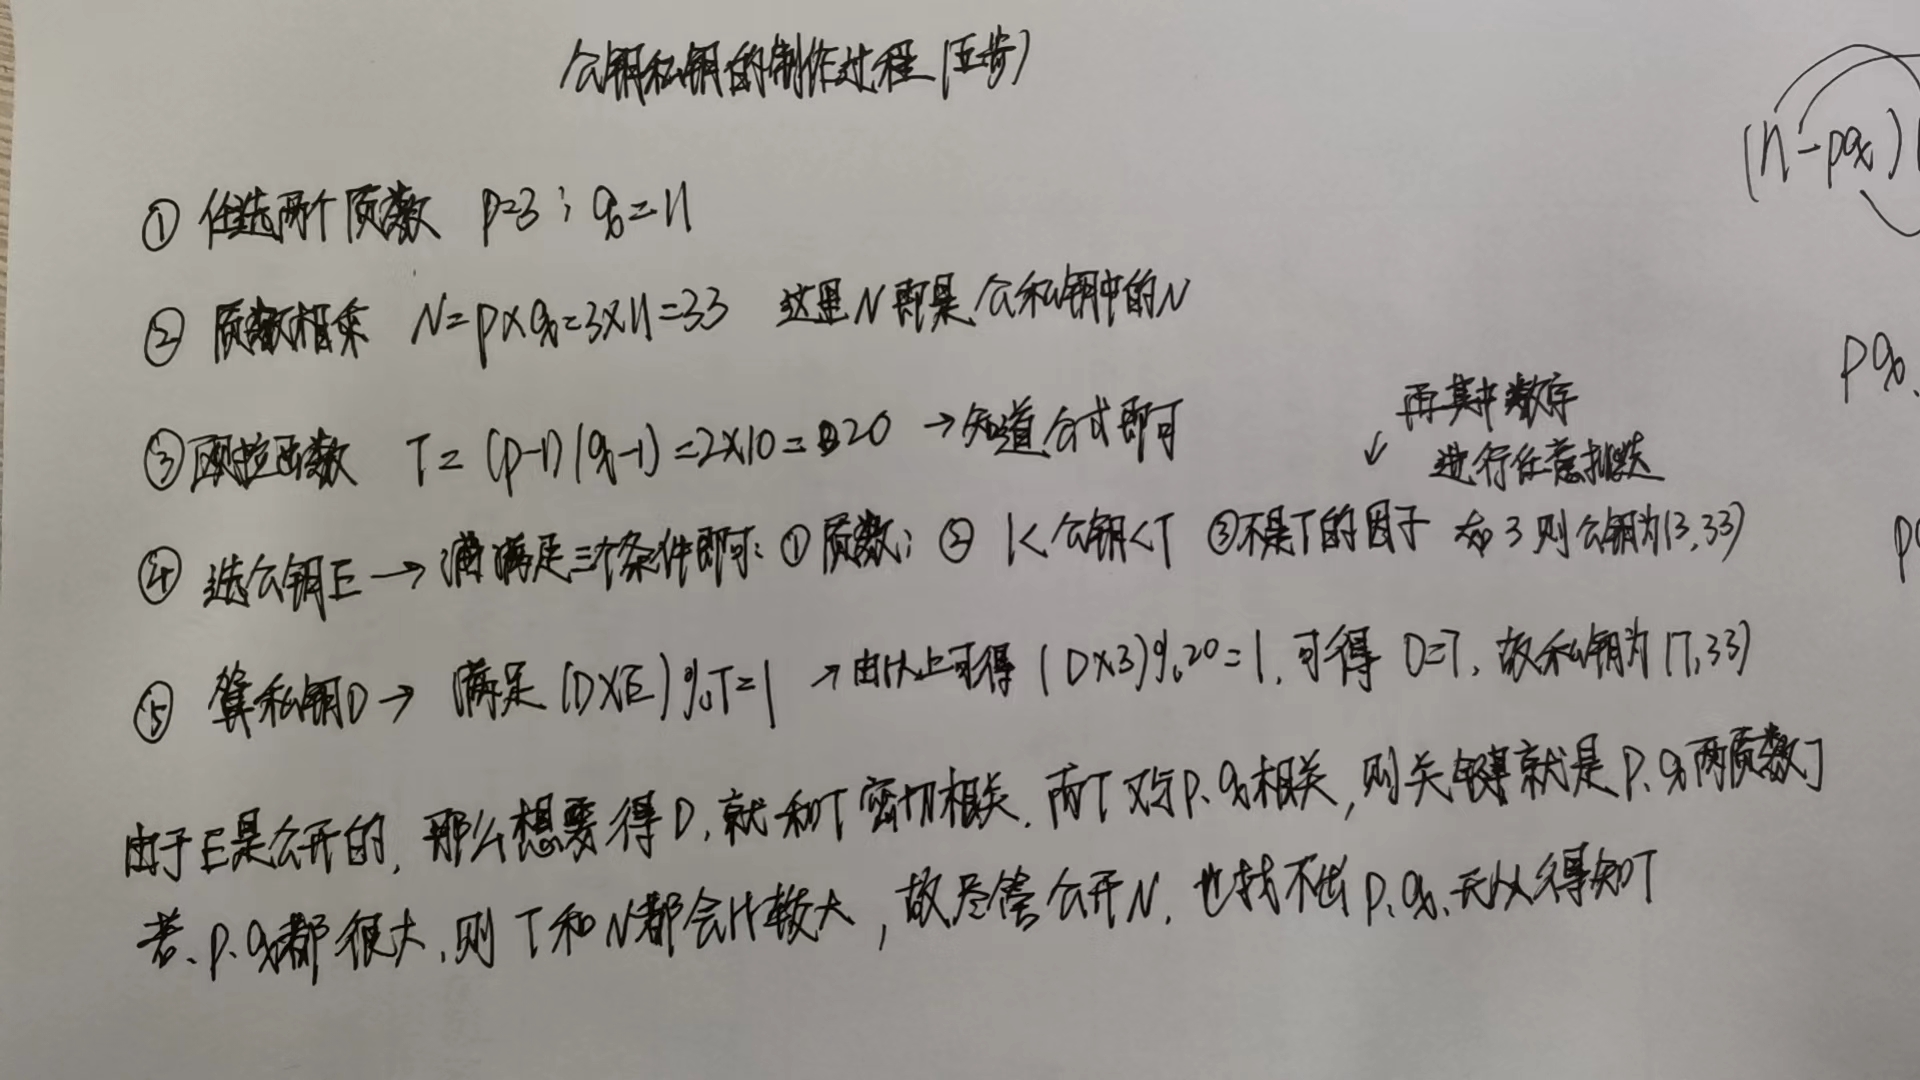 公钥私钥的制作过程(五步)
(n-pq)
① 任选两个质数 p=3; q=11
② 质数相乘 N=p×q=3×11=33 这里N即是公私钥中的N
pq
再其中数字
③ 欧拉函数 T=(p-1)(q-1)=2×10=20 →知道公式即可
↙ 进行任意挑选
④ 选公钥E → 满足三个条件即可: ① 质数; ② 1<公钥<T ③不是T的因子 如3则公钥为(3,33)
⑤ 算私钥D → 满足 (D×E)%T=1 → 由以上可得 (D×3)%20=1, 可得 D=7, 故私钥为(7,33)
由于E是公开的, 那么想要得D, 就和T密切相关, 而T又与p、q相关, 则关键就是p、q两质数了
若、p、q都很大, 则T和N都会比较大, 故尽管公开N, 也找不出p、q、无从得知T